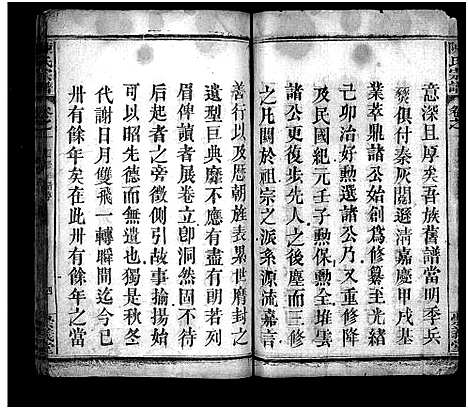 意深且厚矣吾族舊譜當明季兵
燹俱付秦灰閱遜清嘉慶甲戌基
業萃鼎諸公始創爲修纂至光緒
己卯治好勲選諸公乃又重修降
及民國紀元壬子勲煥全堆雲
諸公更復步先人之後塵而三修
之凡關於祖宗之派系源流嘉言
善行以及曆朝族表累世膺封之
遺型巨典靡不應有盡有朗若
眉俾讀者展卷立卽洞然固不待
後起者之旁徵側引故事揄揚始
可以昭先德而無遺也獨是秋冬
代謝日月雙飛一轉瞬間已越
卅有餘年矣在此卅有餘年之當
陳氏宗譜
卷之
四